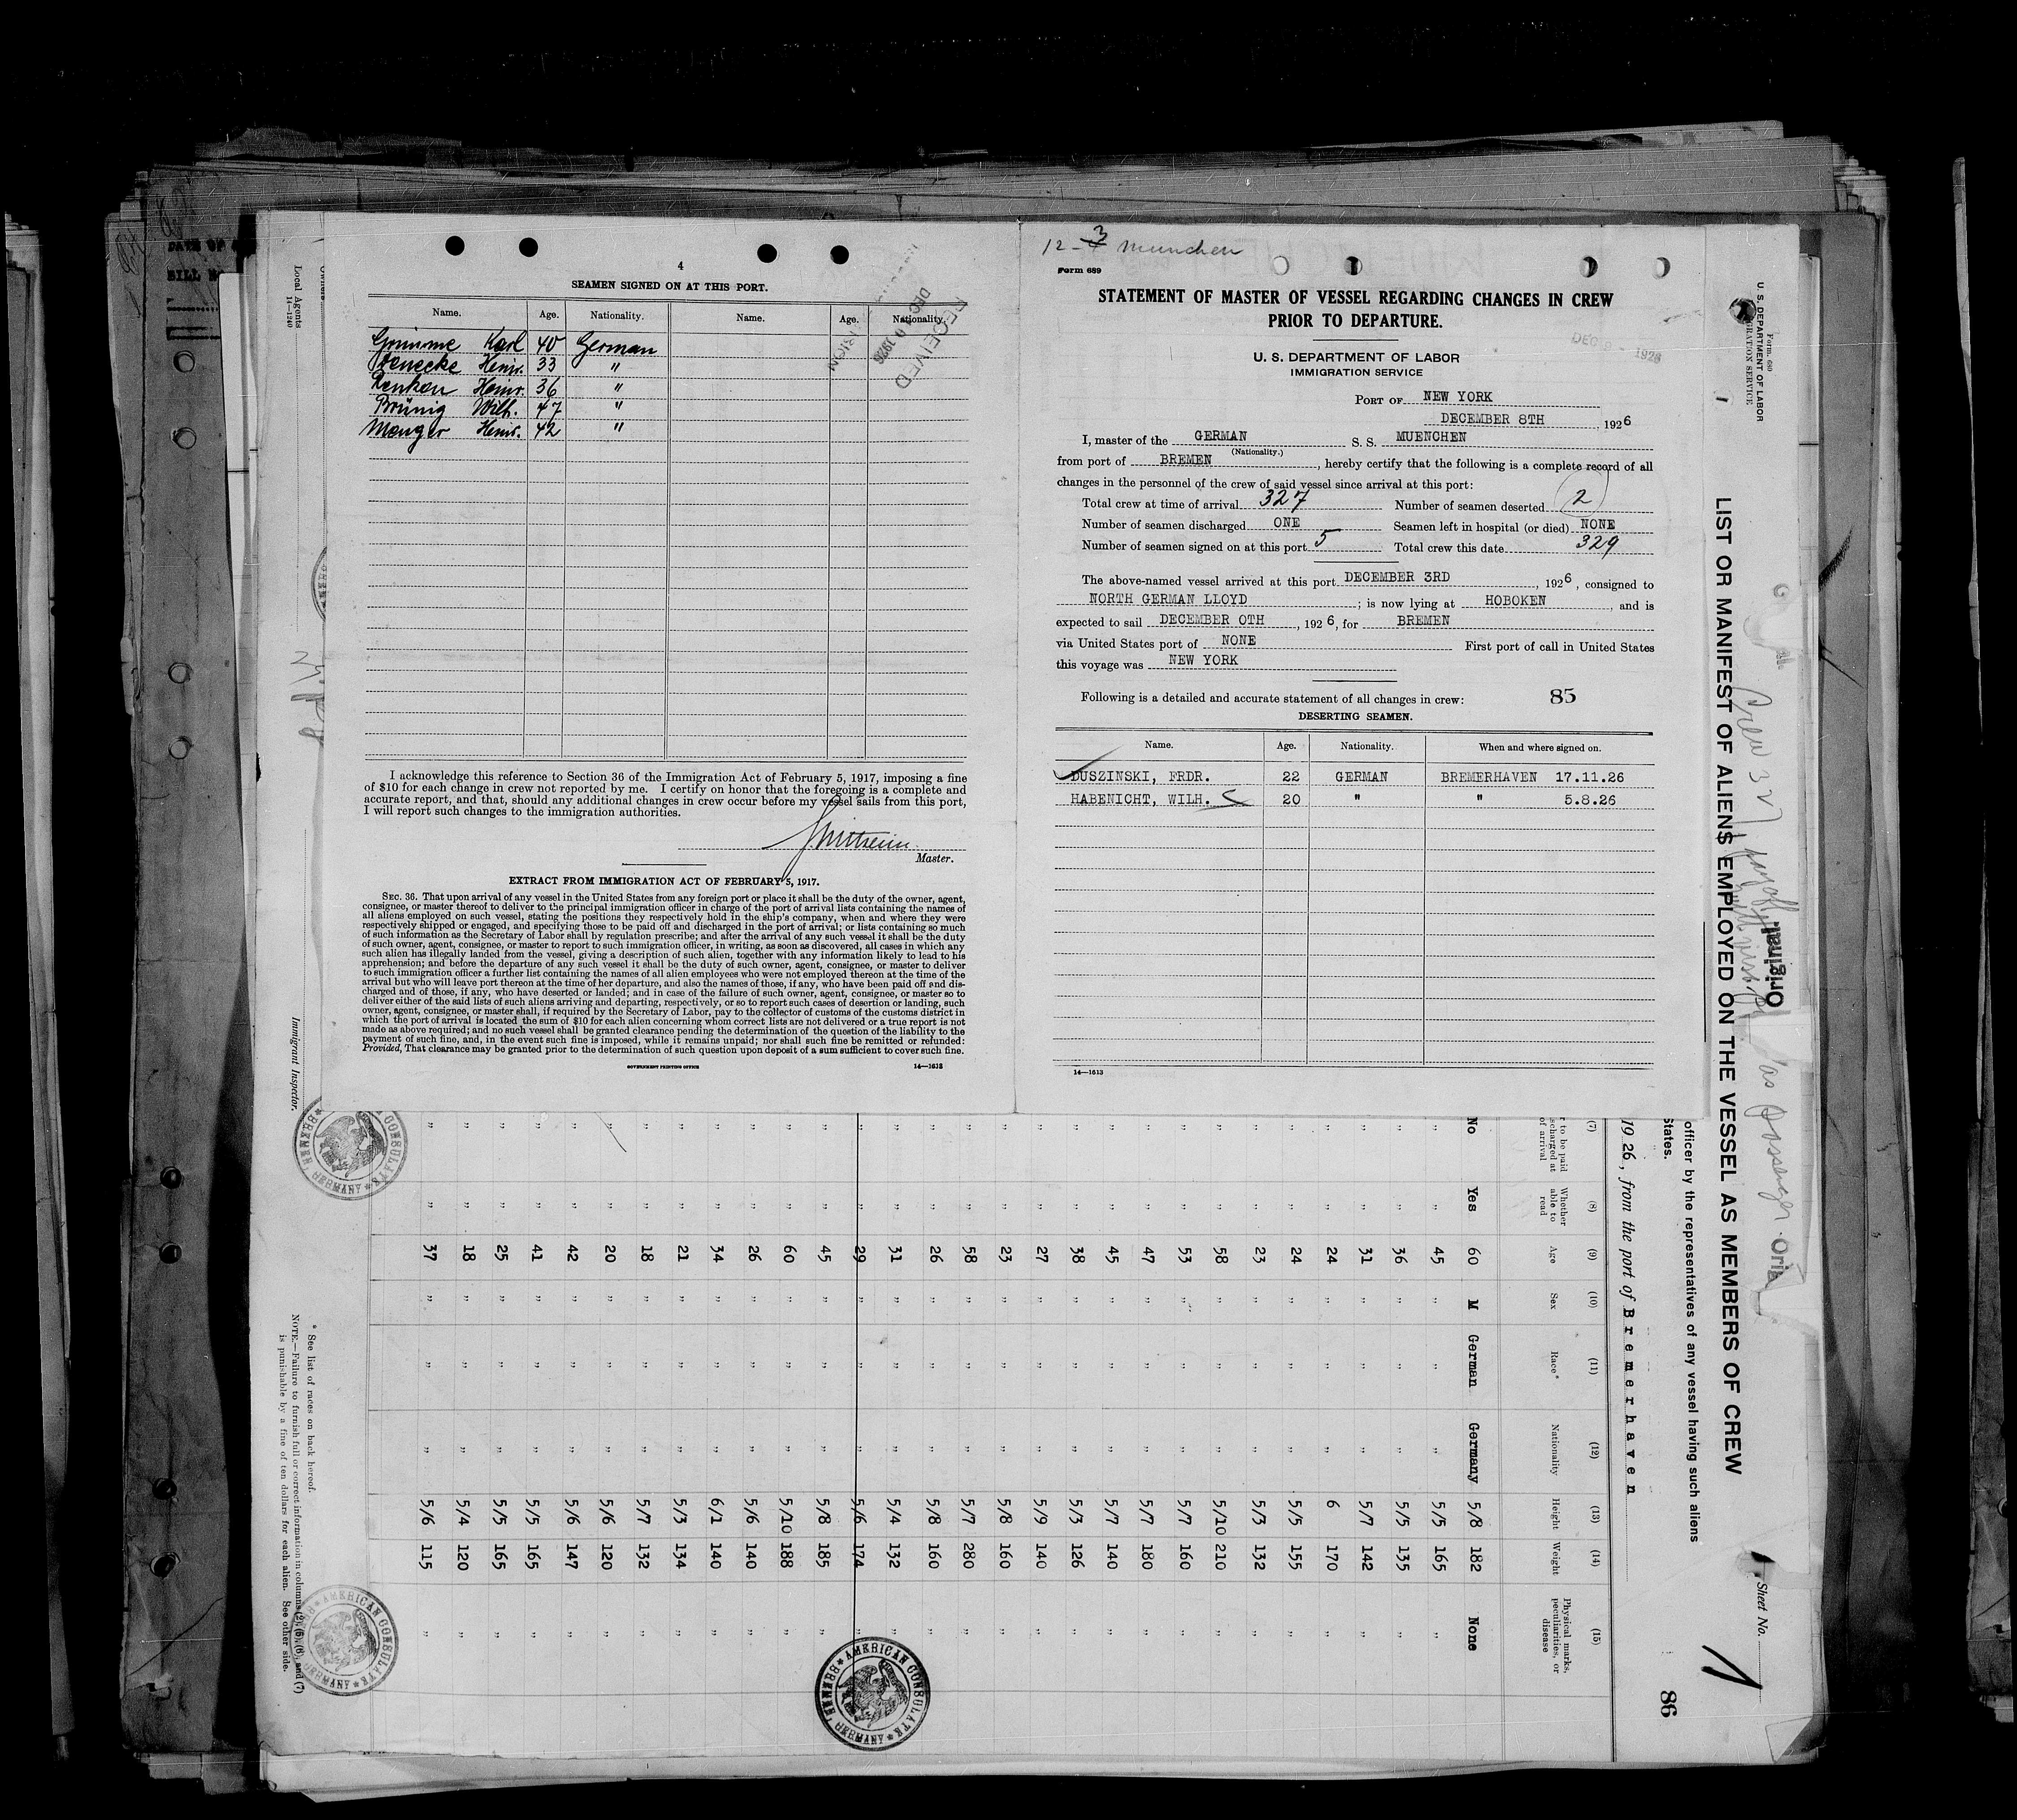 4
SEAMEN SIGNED ON AT THIS PORT.
Name. Age. Nationality. Name. Age. Nationality.
Grimme Karl 40 German
Heinr. 33 "
Renken Heinr. 36 "
Brünig Wilh. 47 "
Menger Heinr. 42 "
RECEIVED
DEC 1926
I acknowledge this reference to Section 36 of the Immigration Act of February 5, 1917, imposing a fine
of $10 for each change in crew not reported by me. I certify on honor that the foregoing is a complete and
accurate report, and that, should any additional changes in crew occur before my vessel sails from this port,
I will report such changes to the immigration authorities.
Master.
EXTRACT FROM IMMIGRATION ACT OF FEBRUARY 5, 1917.
SEC. 36. That upon arrival of any vessel in the United States from any foreign port or place it shall be the duty of the owner, agent,
consignee, or master thereof to deliver to the principal immigration officer in charge of the port of arrival lists containing the names of
all aliens employed on such vessel, stating the positions they respectively hold in the ship's company, when and where they were
respectively shipped or engaged, and specifying those to be paid off and discharged in the port of arrival; or lists containing so much
of such information as the Secretary of Labor shall by regulation prescribe; and after the arrival of any such vessel it shall be the duty
of such owner, agent, consignee, or master to report to such immigration officer, in writing, as soon as discovered, all cases in which any
such alien has illegally landed from the vessel, giving a description of such alien, together with any information likely to lead to his
apprehension; and before the departure of any such vessel it shall be the duty of such owner, agent, consignee, or master to deliver
to such immigration officer a further list containing the names of all alien employees who were not employed thereon at the time of the
arrival but who will leave port thereon at the time of her departure, and also the names of those, if any, who have been paid off and dis-
charged and of those, if any, who have deserted or landed; and in case of the failure of such owner, agent, consignee, or master so to
deliver either of the said lists of such aliens arriving and departing, respectively, or so to report such cases of desertion or landing, such
owner, agent, consignee, or master shall, if required by the Secretary of Labor, pay to the collector of customs of the customs district in
which the port of arrival is located the sum of $10 for each alien concerning whom correct lists are not delivered or a true report is not
made as above required; and no such vessel shall be granted clearance pending the determination of the question of the liability to the
payment of such fine, and, in the event such fine is imposed, while it remains unpaid; nor shall such fine be remitted or refunded:
Provided, That clearance may be granted prior to the determination of such question upon deposit of a sum sufficient to cover such fine.
GOVERNMENT PRINTING OFFICE 14—1613
12-3 Munchen
Form 689
STATEMENT OF MASTER OF VESSEL REGARDING CHANGES IN CREW
PRIOR TO DEPARTURE.
U. S. DEPARTMENT OF LABOR
IMMIGRATION SERVICE
DEC 1926
PORT OF NEW YORK
DECEMBER 8TH, 1926
I, master of the GERMAN S. S. MUENCHEN
(Nationality.)
from port of BREMEN, hereby certify that the following is a complete record of all
changes in the personnel of the crew of said vessel since arrival at this port:
Total crew at time of arrival 327 Number of seamen deserted 2
Number of seamen discharged ONE Seamen left in hospital (or died) NONE
Number of seamen signed on at this port 5 Total crew this date 329
The above-named vessel arrived at this port DECEMBER 3RD, 1926, consigned to
NORTH GERMAN LLOYD; is now lying at HOBOKEN, and is
expected to sail DECEMBER 0TH, 1926, for BREMEN
via United States port of NONE First port of call in United States
this voyage was NEW YORK
Following is a detailed and accurate statement of all changes in crew: 85
DESERTING SEAMEN.
Name. Age. Nationality. When and where signed on.
DUSZINSKI, FRDR. 22 GERMAN BREMERHAVEN 17.11.26
HABENICHT, WILH. 20 " " 5.8.26
14—1613
Form 680
U. S. DEPARTMENT OF LABOR
IMMIGRATION SERVICE
LIST OR MANIFEST OF ALIENS EMPLOYED ON THE VESSEL AS MEMBERS OF CREW
Sheet No. 1
Original
Crew 327
as passenger
officer by the representatives of any vessel having such aliens
States.
86
1926, from the port of Bremerhaven
(7) (8) (9) (10) (11) (12) (13) (14) (15)
Whether able to read Age Sex Race* Nationality Height Weight Physical marks, peculiarities, or disease
No Yes 60 M German Germany 5/8 182 None
" " 45 " " " 5/5 165 "
" " 36 " " " 5/5 135 "
" " 31 " " " 5/7 142 "
" " 24 " " " 6 170 "
" " 24 " " " 5/5 155 "
" " 23 " " " 5/3 132 "
" " 58 " " " 5/10 210 "
" " 53 " " " 5/7 160 "
" " 47 " " " 5/7 180 "
" " 45 " " " 5/7 140 "
" " 38 " " " 5/3 126 "
" " 27 " " " 5/9 140 "
" " 23 " " " 5/8 160 "
" " 58 " " " 5/7 280 "
" " 26 " " " 5/8 160 "
" " 31 " " " 5/4 132 "
" " 29 " " " 5/6 174 "
" " 45 " " " 5/8 185 "
" " 60 " " " 5/10 188 "
" " 26 " " " 5/6 140 "
" " 34 " " " 6/1 140 "
" " 21 " " " 5/3 134 "
" " 18 " " " 5/7 132 "
" " 20 " " " 5/6 120 "
" " 42 " " " 5/6 147 "
" " 41 " " " 5/5 165 "
" " 25 " " " 5/5 165 "
" " 18 " " " 5/4 120 "
" " 37 " " " 5/6 115 "
* See list of races on back hereof.
NOTE.—Failure to furnish full or correct information in columns (2), (5), (6), and (7)
is punishable by a fine of ten dollars for each alien. See other side.
Immigrant Inspector.
Local Agents
14—1240
Owners
AMERICAN CONSULATE BREMEN, GERMANY
AMERICAN CONSULATE BREMEN, GERMANY
AMERICAN CONSULATE BREMEN, GERMANY
DATE OF
BILL